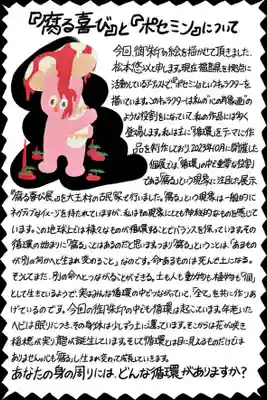 『腐る喜び』と『ポセミン』について
今回、御朱印の絵を描かせて頂きました、
松本悠以と申します。現在福島県を拠点に
活動しているアーティストで、『ポセミン』というキャラクターを
描いています。このキャラクターは私の“心の肖像画”の
ような役割をになっていて、私の作品には多く
登場します。私は主に「循環」をテーマに作
品を制作しており、2023年10月に開催した
個展では、「循環」の中で重要な役割
である「腐る」という現象に注目した展示
『腐る喜び展』を大玉村の古民家で行いました。「腐る」という現象は一般的に
ネガティブなイメージを持たれていますが、私はその現象にとても神秘的なものを感じて
います。この地球上では様々なものが循環することでバランスを保っています。その
循環の始まりに「腐る」ことはあるのだと思います。つまり「腐る」ということは、「あるもの
が別の何かへと生まれ変わること」なのです。今あるものは死んで土になる。
そしてまた、別の命へとつながることができる。土も人も動物も植物も「個」
として生きているようで、実はみんな循環の中でつながっていて、「全て」を共に作りあ
げているのです。今回の御朱印の中でも循環は起こっています。年老いた
ヘビは眠りにつき、その身体は少しずつ土に還っています。そこからは花が咲き
稲穂が実り龍が誕生しています。そして循環とは目に見えるものだけでは
ありません。心でも「腐る」し生まれ変わって成長していきます。
あなたの身の周りには、どんな循環がありますか？